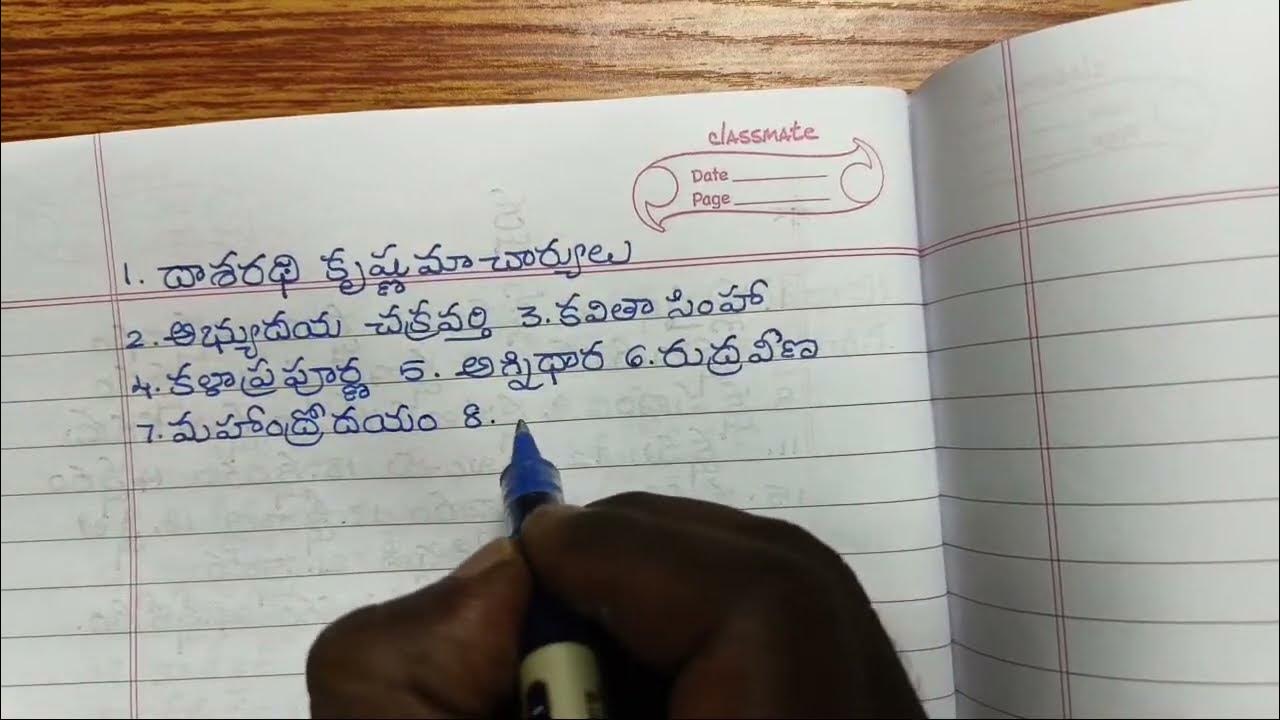 classmate
Date
Page
1. దాశరథి కృష్ణమాచార్యులు
2. అభ్యుదయ చక్రవర్తి 3. కవితా సింహా
4. కళాప్రపూర్ణ 5. అగ్నిధార 6. రుద్రవీణ
7. మహాంద్రోదయం 8.